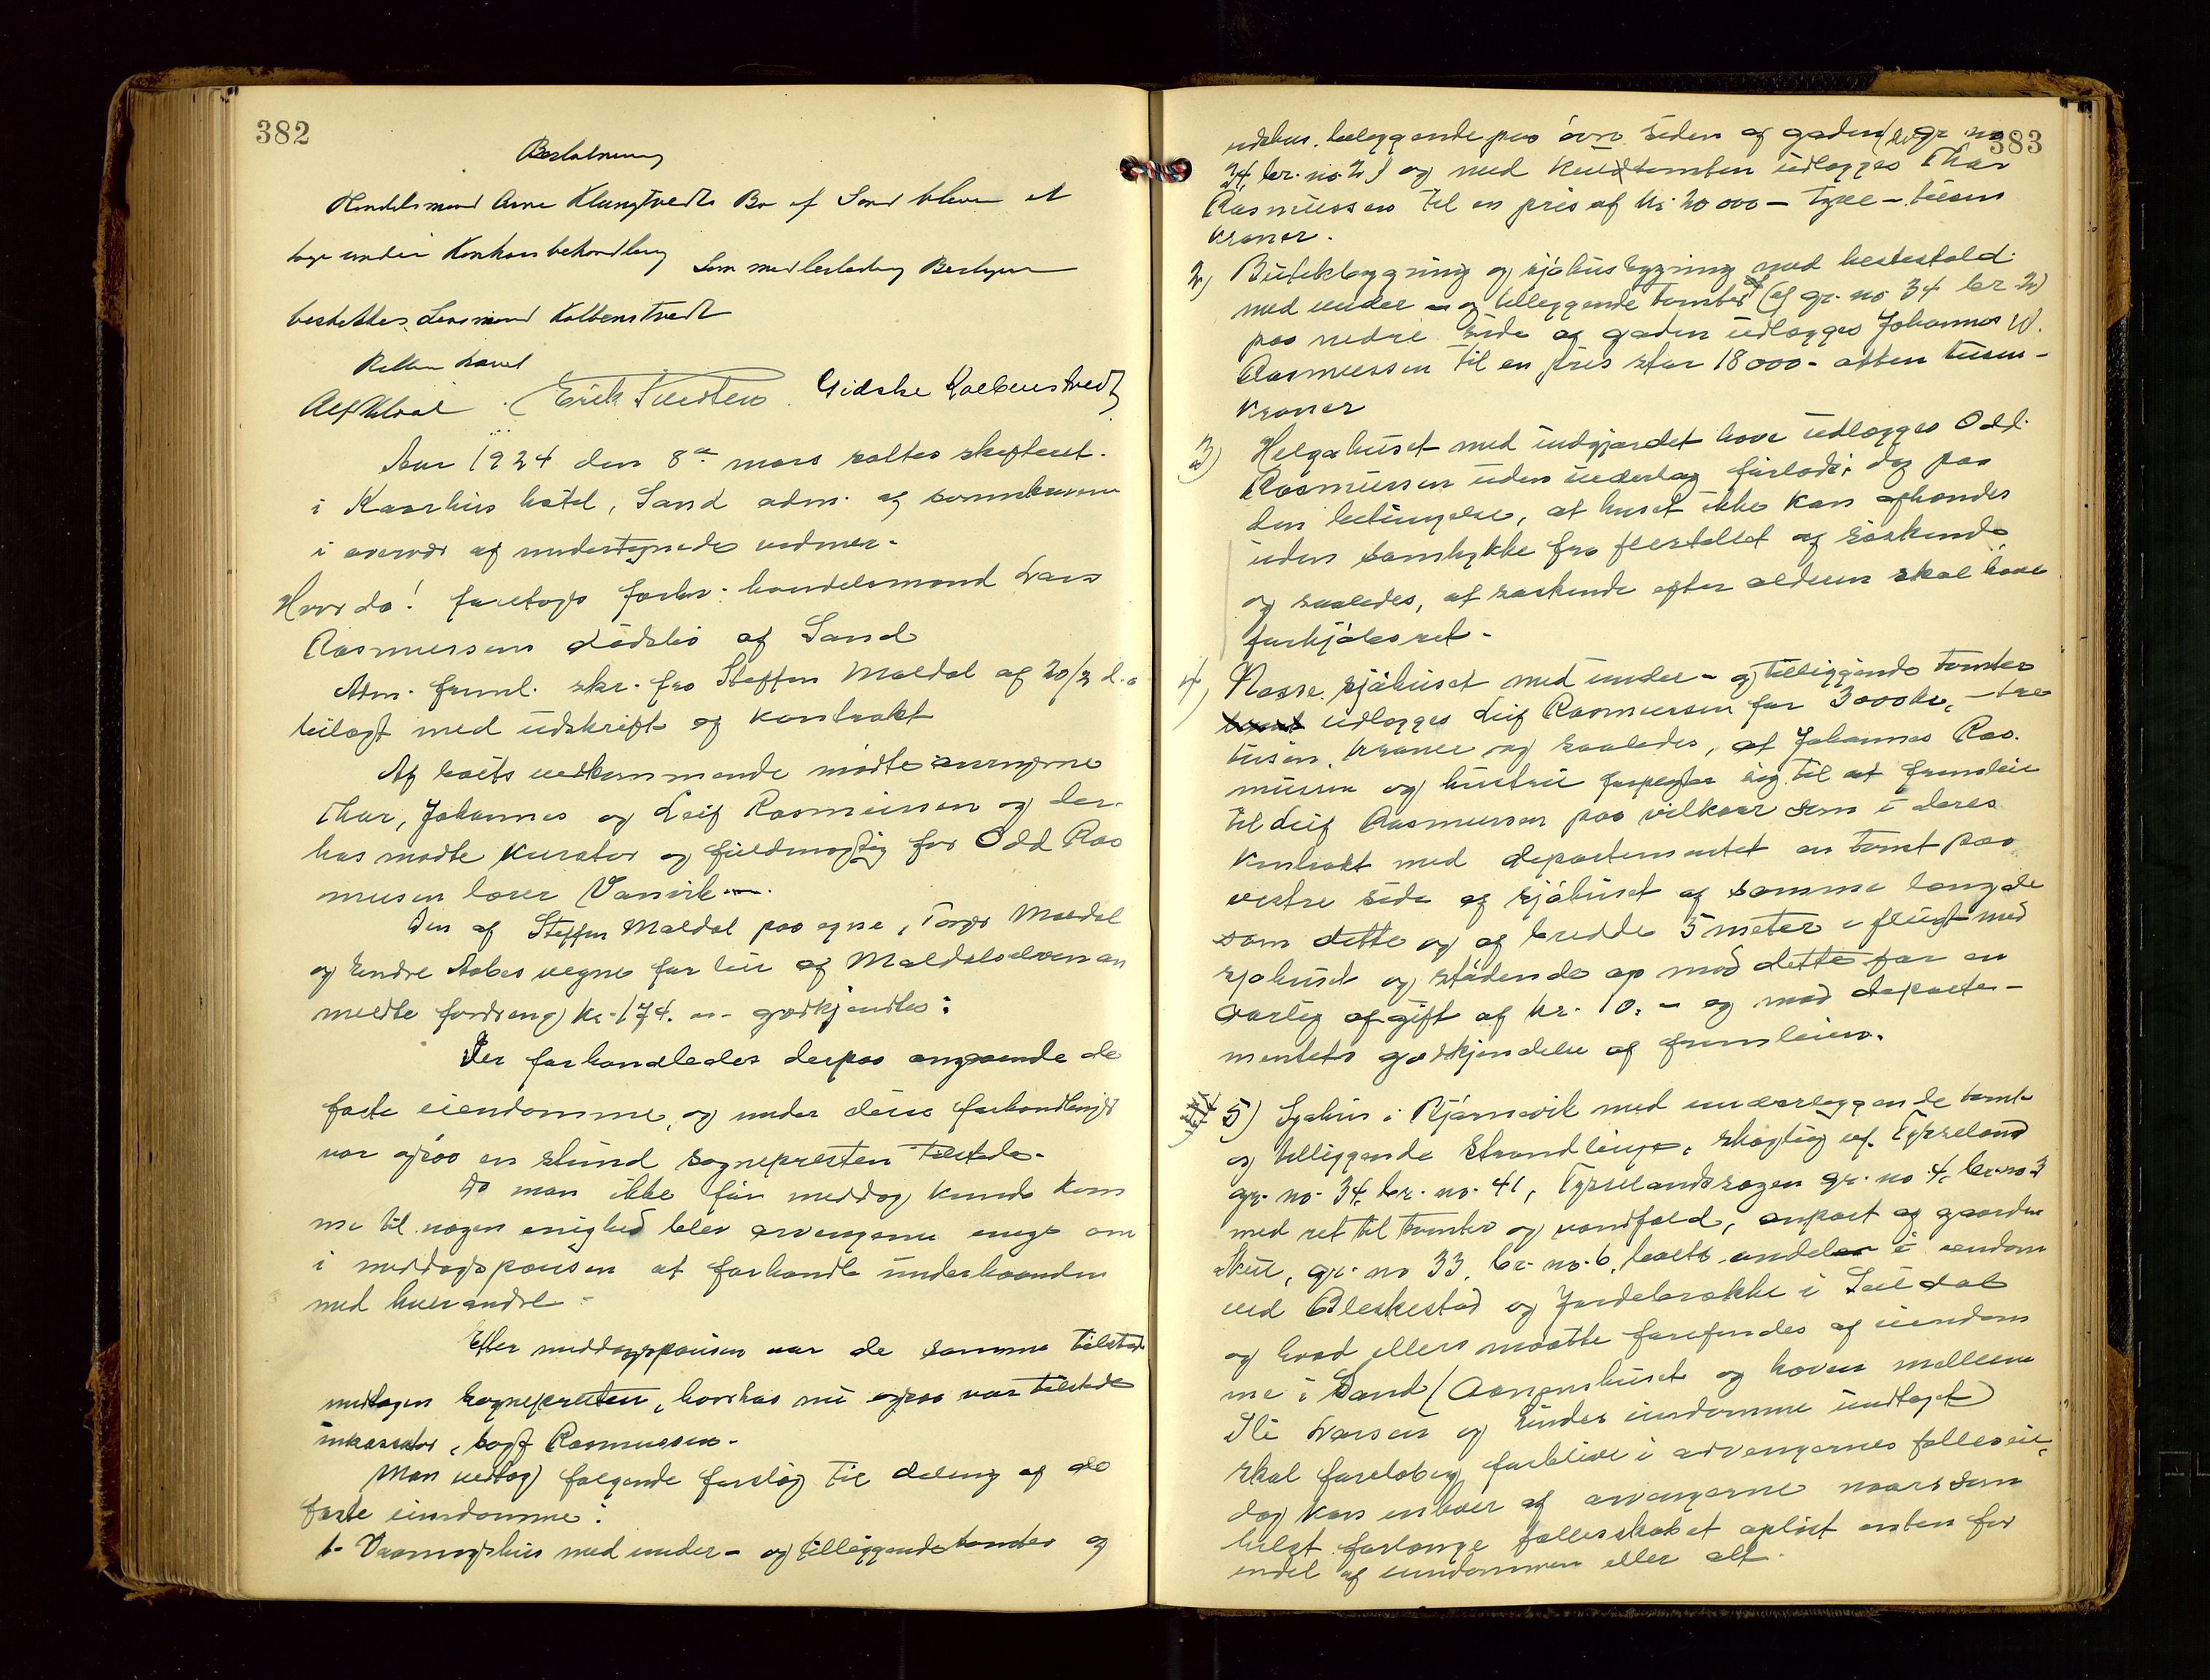 382
Beslutning
Handelsmand Arne Klungtvedts Bo af Sand bliver at
tage under Konkursbehandling Som medlertidig Bestyrer
beskikkes Lensmand Kolbenstvedt
Retten hævet
Erik Gidske Kolbenstvedt
Aar 1924 den 8de mars sattes skifteret
i Kaarhus hotel, Sand adm. af sorenskriveren
i overvær af undertegnede vidner.
Hvor da! foretoges forhv. handelsmand Lars
Rasmussens dødsbo af Sand
Adm. freml. skr. fra Steffen Maldal af 20/2 d.a
bilagt med udskrift og kontrakt
Af boets vedkommende mødte arvingerne
Thor, Johannes og Leif Rasmussen og der-
hos mødte kurator og fuldmægtig for Odd Ras
mussen lærer Vanvik
Den af Steffen Maldal paa egne, Maldal
og Endre Aabes vegne for leie af Maldalselven an
meldte fordring kr. 174. godkjendtes:
Der forhandledes derpaa angaaende de
faste eiendomme, og under disse forhandlinger
var ogsaa en stund sognepresten tilstede.
Da man ikke før middag kunde kom
me til nogen enighed blev arvingerne enige om
i middagspausen at forhandle underhaanden
med hverandre
Efter middagspausen var de samme tilstede
undtagen sognepresten, hvorhos nu ogsaa var tilstede
inkassator, sagf Rasmussen.
Man vedtog følgende forslag til deling af de
faste eiendomme:
1. Vaaningshus med under- og tilliggende tomter og
383
udhus beliggende paa øvre siden af gaden (af gr. no
34, br. no. 2) og med tomten udlægges Thor
Rasmussen til en pris af kr. 20 000 - tyve - tusen
kroner.
2) Butikbygning og sjøhusbygning med hestestald
med under - og tilliggende tomter (af gr. no 34 br 2)
paa nedre side af gaden udlægges Johannes W.
Rasmussen til en pris stor 18 000 - atten tusen -
kroner
3) Helgahuset med indgjærdet have udlægges Odd
Rasmussen uden vederlag dog paa
den betingelse, at huset ikke kan afhændes
uden samtykke fra flertallet af søskende
og saaledes, at søskende efter alderen skal have
forkjøbsret -
4) Næsse sjøhuset med under - og tilliggende tomter
udlægges Leif Rasmussen for 3000 kr, - tre
tusen kroner og saaledes, at Johannes Ras
mussen og hustru forpligter sig til at fremleie
til Leif Rasmussen paa vilkaar som i deres
kontrakt med departementet en tomt paa
vestre side af sjøhuset af samme længde
som dette og af bredde 5 meter i flugt med
sjøhuset og stødende op mod dette for en
aarlig afgift af kr. 10. - og mod departe-
mentets godkjendelse af fremleien.
5) Sjøhus i med underliggende tomt
og tilliggende strandlinje, skogteig af Tysseland
gr. no. 34, br. no. 41, Tysselandssagen gr. no 4, br. no 3
med ret til tomter og vandfald, anpart af gaarden
gr. no 33, br. no. 6, boets andel i eiendom
ved Bleskestad og Jordebrække i Suldal
og hvad ellers maatte forefindes af eiendom
me i Sand ( og haven mellem
Larsen og eiendomme undtaget)
skal foreløbig forblive i arvingernes felleseie,
dog kan enhver af arvingerne naarsom
helst forlange fellesskabet opløst enten for
endel af eiendommen eller alt.